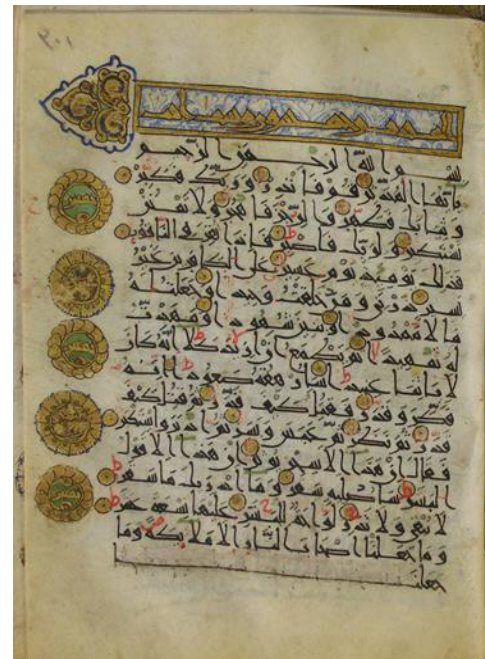 بسم الله الرحمن الرحيم
يايها المدثر قم فانذر وربك فكبر
وثيابك فطهر والرجز فاهجر ولا تمنن
تستكثر ولربك فاصبر فاذا نقر في الناقور
فذلك يومئذ يوم عسير على الكافرين غير
يسير ذرني ومن خلقت وحيدا وجعلت له
مالا ممدودا وبنين شهودا ومهدت
له تمهيدا ثم يطمع ان ازيد كلا انه كان
لاياتنا عنيدا سارهقه صعودا انه
فكر وقدر فقتل كيف قدر ثم قتل كيف
قدر ثم نظر ثم عبس وبسر ثم ادبر واستكبر
فقال ان هذا الا سحر يؤثر ان هذا الا قول
البشر ساصليه سقر وما ادريك ما سقر
لا تبقي ولا تذر لواحة للبشر عليها تسعة عشر
وما جعلنا اصحاب النار الا ملايكة وما
جعلنا